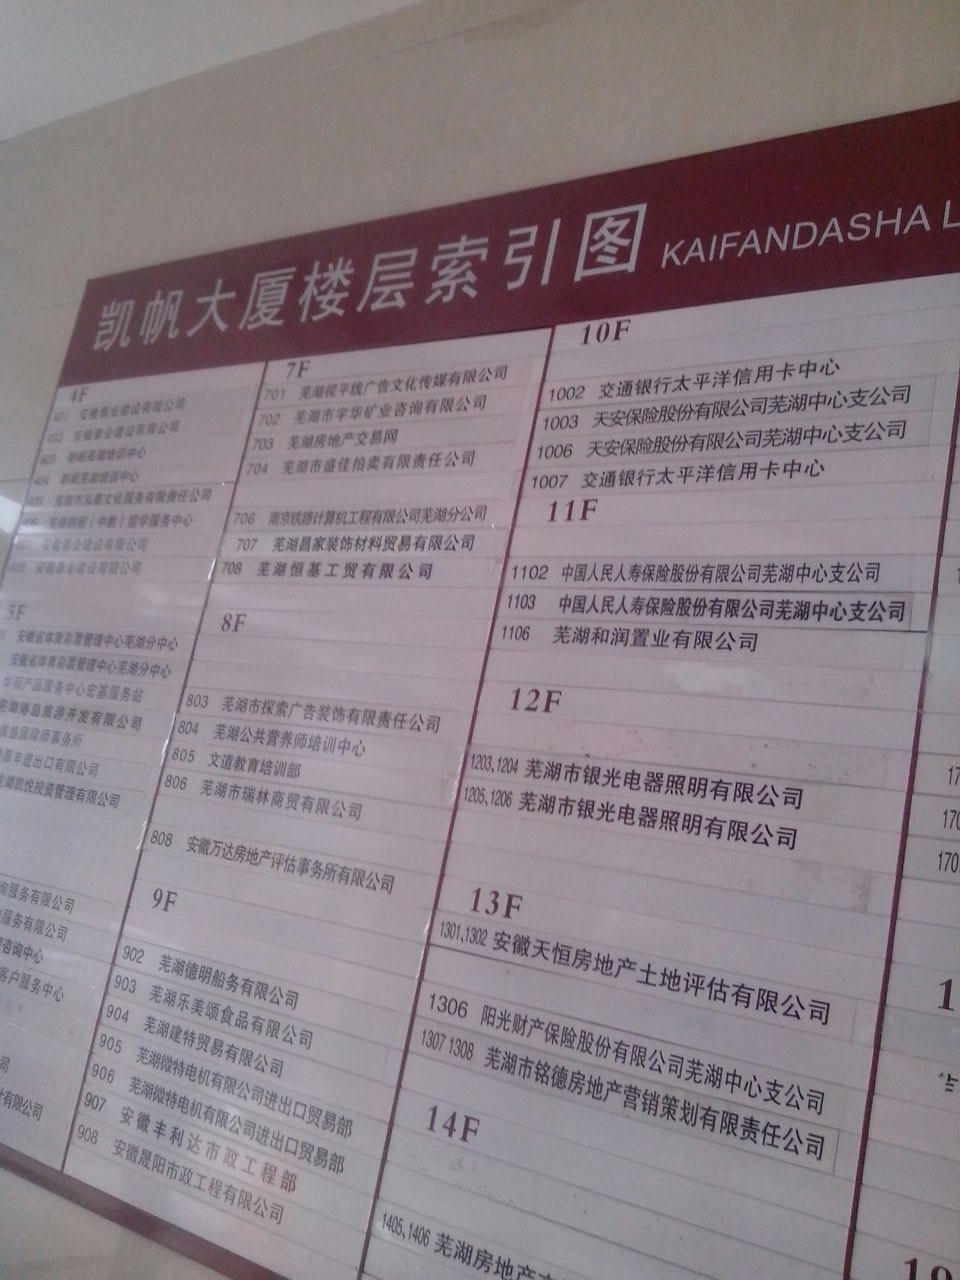 凯帆大厦楼层索引图 KAIFANDASHA L
4F
401 安徽泰业建设有限公司
402 安徽泰业建设有限公司
403 朗阁芜湖培训中心
404 朗阁芜湖培训中心
405 芜湖市泓泰文化服务有限责任公司
芜湖朗阁（中教）留学服务中心
安徽泰业建设有限公司
408 安徽泰业建设有限公司
5F
安徽省体育彩票管理中心芜湖分中心
安徽省体育彩票管理中心芜湖分中心
华硕产品服务中心宏基服务站
芜湖港岛旅游开发有限公司
律师事务所
源丰进出口有限公司
湖凯悦投资管理有限公司
询服务有限公司
服务有限公司
咨询中心
客户服务中心
司
有限公司
7F
701 芜湖视平线广告文化传媒有限公司
702 芜湖市宇华矿业咨询有限公司
703 芜湖房地产交易网
704 芜湖市盛佳拍卖有限责任公司
706 南京铁路计算机工程有限公司芜湖分公司
707 芜湖昌家装饰材料贸易有限公司
708 芜湖恒基工贸有限公司
8F
803 芜湖市探索广告装饰有限责任公司
804 芜湖公共营养师培训中心
805 文道教育培训部
806 芜湖市瑞林商贸有限公司
808 安徽万达房地产评估事务所有限公司
9F
902 芜湖德明船务有限公司
903 芜湖乐美颂食品有限公司
904 芜湖建特贸易有限公司
905 芜湖微特电机有限公司进出口贸易部
906 芜湖微特电机有限公司进出口贸易部
907 安徽丰利达市政工程部
908 安徽晟阳市政工程有限公司
10F
1002 交通银行太平洋信用卡中心
1003 天安保险股份有限公司芜湖中心支公司
1006 天安保险股份有限公司芜湖中心支公司
1007 交通银行太平洋信用卡中心
11F
1102 中国人民人寿保险股份有限公司芜湖中心支公司
1103 中国人民人寿保险股份有限公司芜湖中心支公司
1106 芜湖和润置业有限公司
12F
1203、1204 芜湖市银光电器照明有限公司
1205、1206 芜湖市银光电器照明有限公司
13F
1301、1302 安徽天恒房地产土地评估有限公司
1306 阳光财产保险股份有限公司芜湖中心支公司
1307 1308 芜湖市铭德房地产营销策划有限责任公司
14F
1405、1406 芜湖房地产
17
170
170
1